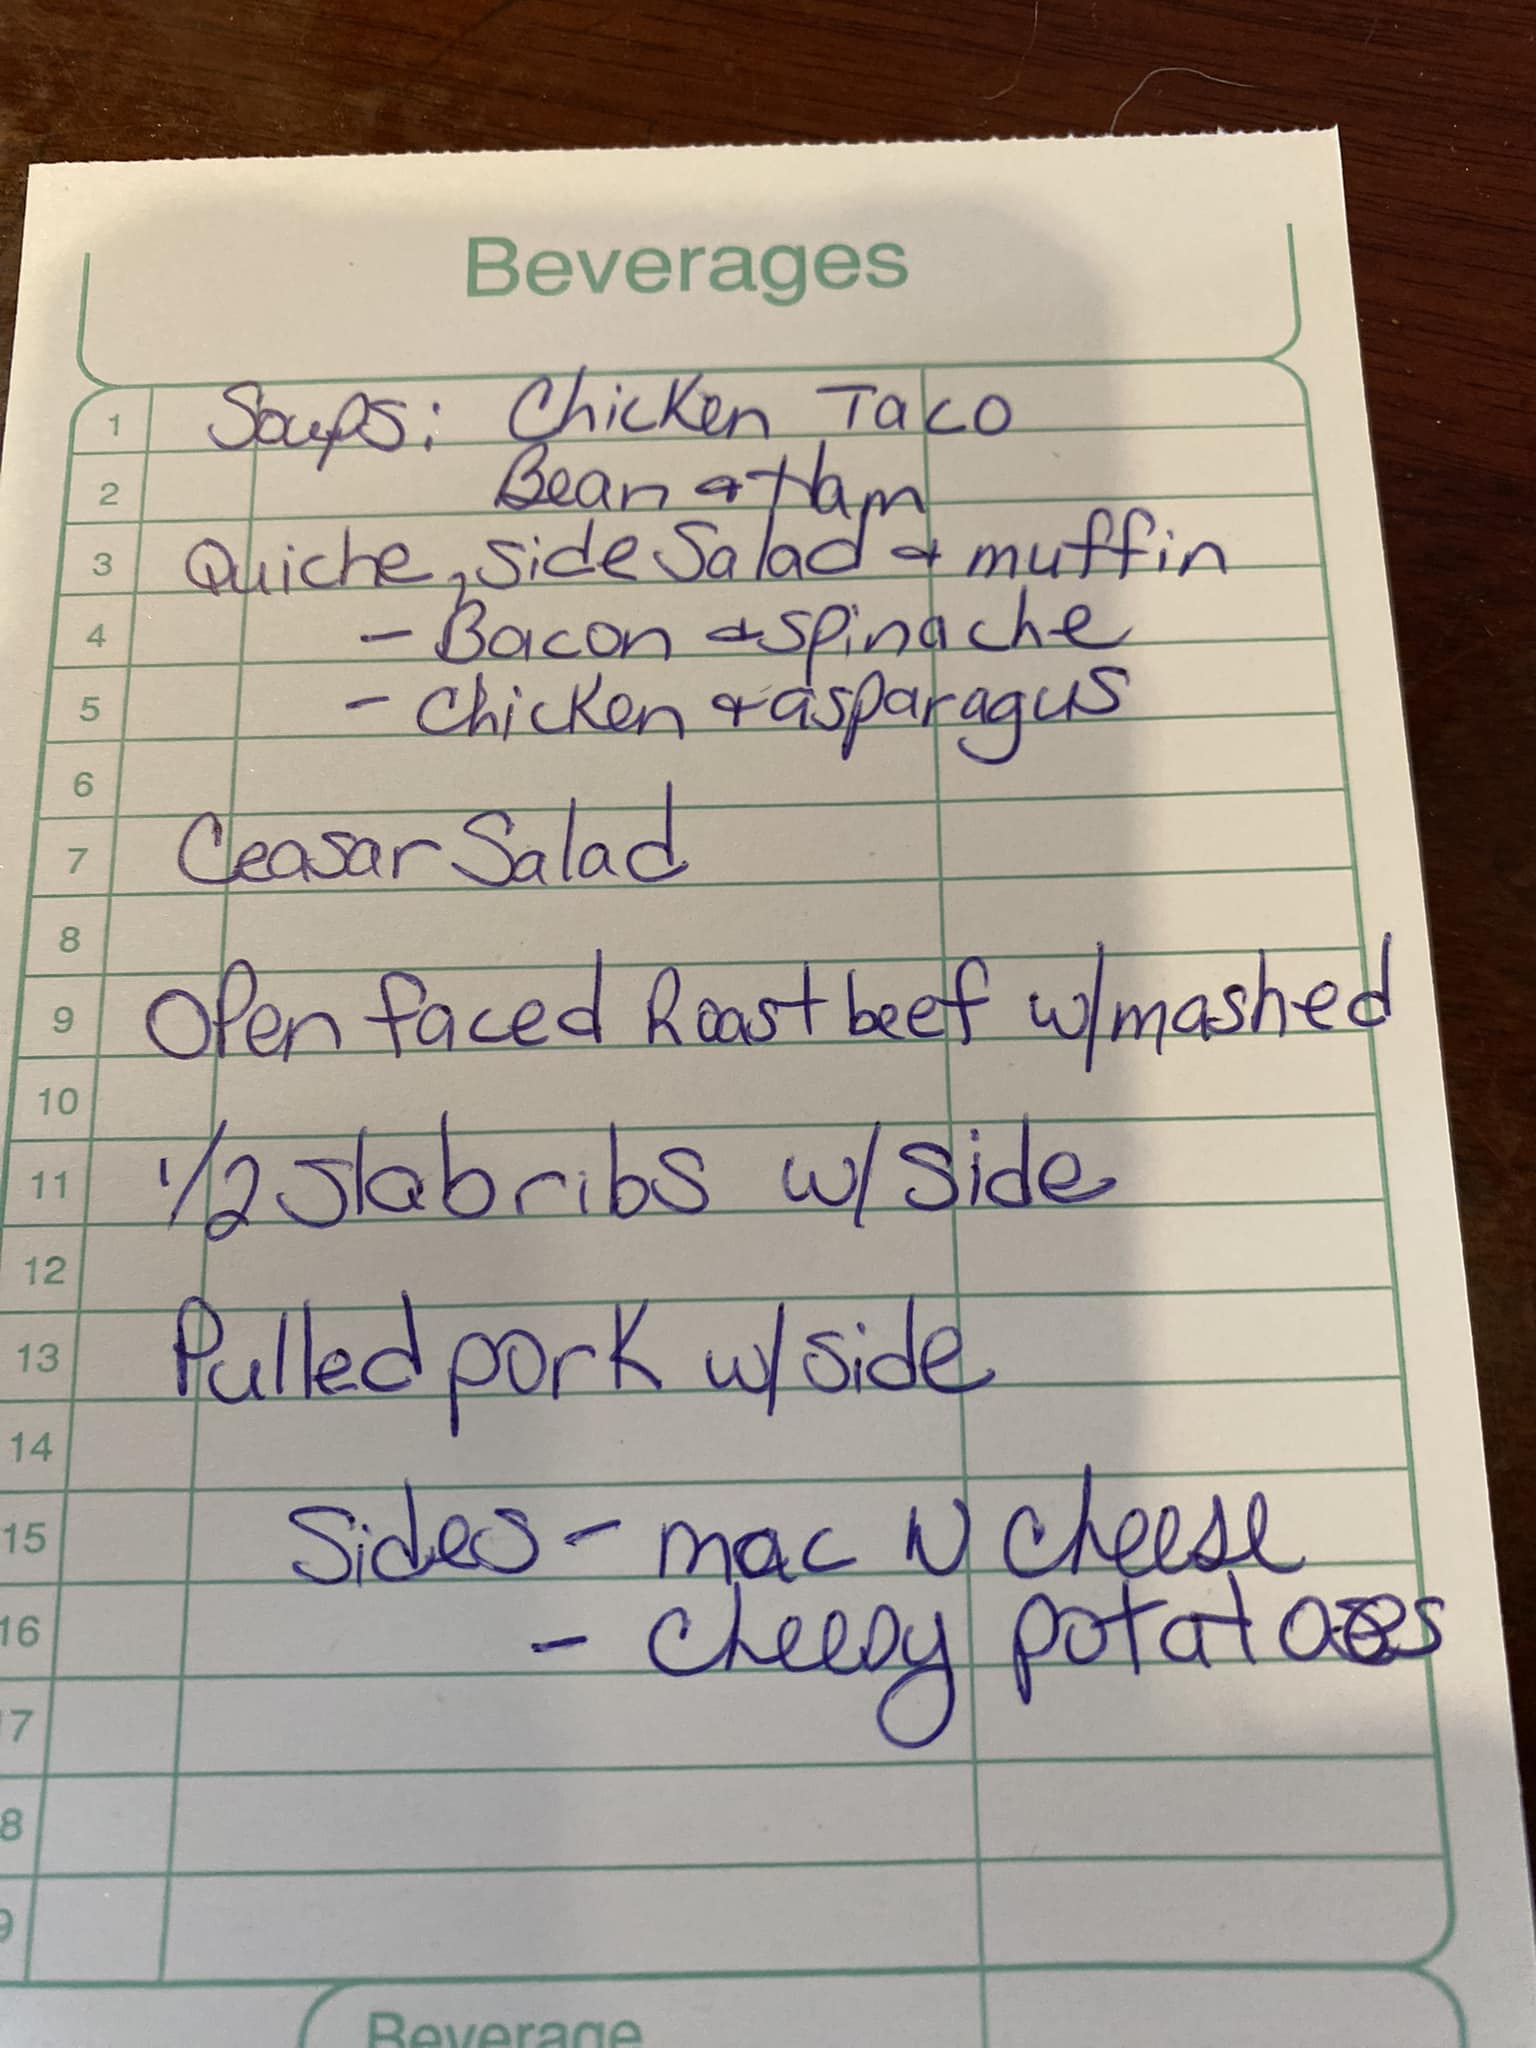 Beverages
1 Soups: Chicken Taco
2 Bean & Ham
3 Quiche, side Salad & muffin
4 - Bacon & spinache
5 - Chicken & asparagus
6
7 Ceasar Salad
8
9 Open faced Roast beef w/mashed
10
11 1/2 slab ribs w/ side
12
13 Pulled pork w/side
14
15 Sides - mac N cheese
16 - cheesy potatoes
17
8
9
Beverage